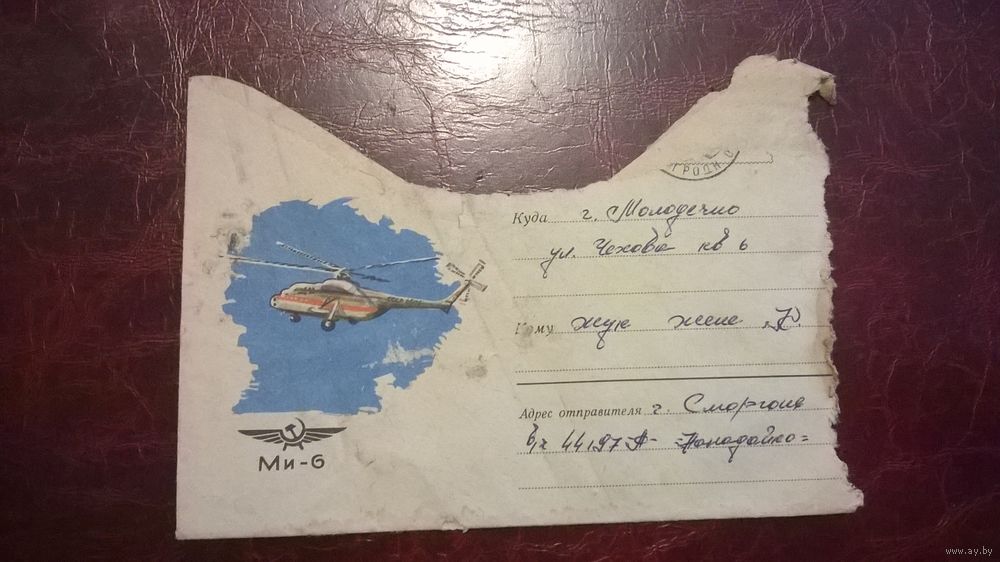 ГРОДН
Куда г. Молодечно
ул. Чехова кв 6
Кому Жук жене
Адрес отправителя г. Сморгонь
в/ч 44197
Ми-6
www.ay.by